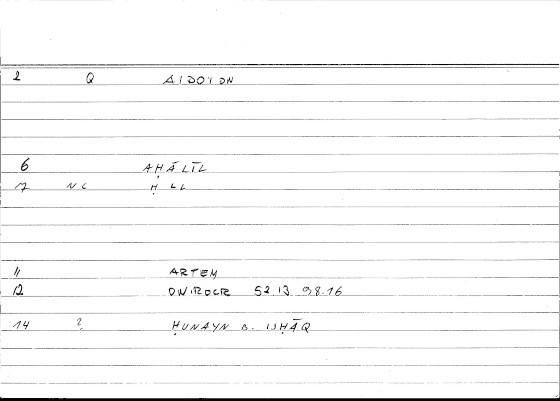 2 Q AIDOION
6 AḤĀLĪL
7 NC ḤLL
11 ARTEM
12 ONIROCR 52.13 98.16
14 ? ḤUNAYN B. ISḤĀQ